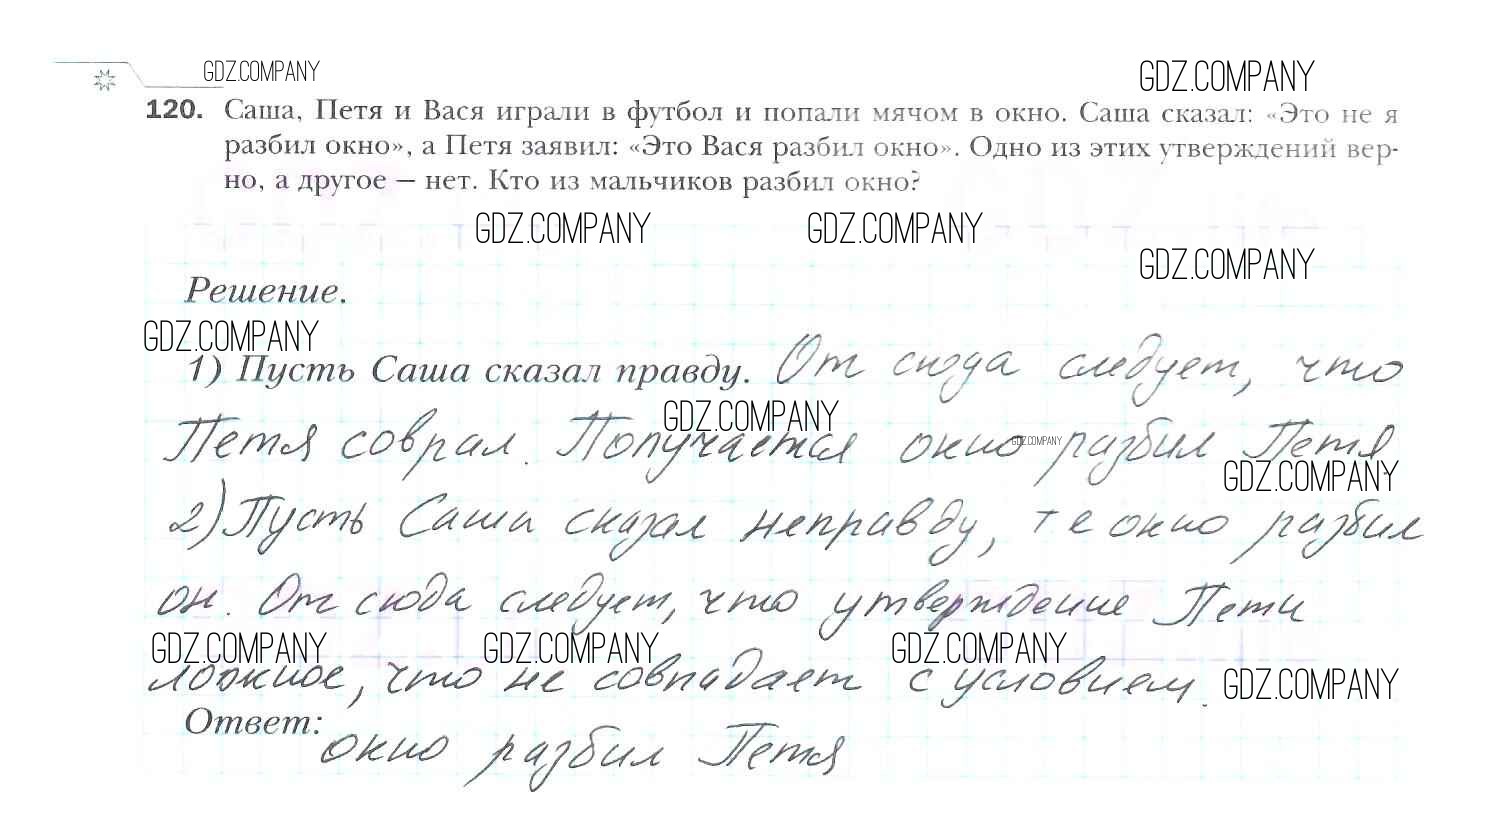 GDZ.COMPANY
GDZ.COMPANY
120. Саша, Петя и Вася играли в футбол и попали мячом в окно. Саша сказал: «Это не я
разбил окно», а Петя заявил: «Это Вася разбил окно». Одно из этих утверждений вер-
но, а другое — нет. Кто из мальчиков разбил окно?
GDZ.COMPANY GDZ.COMPANY
GDZ.COMPANY
Решение.
GDZ.COMPANY
1) Пусть Саша сказал правду. От сюда следует, что
GDZ.COMPANY
Петя соврал. Получается окно разбил Петя
GDZ.COMPANY
GDZ.COMPANY
2) Пусть Саша сказал неправду, т е окно разбил
он. От сюда следует, что утверждение Пети
GDZ.COMPANY GDZ.COMPANY GDZ.COMPANY
ложное, что не совпадает с условием.
GDZ.COMPANY
Ответ: окно разбил Петя